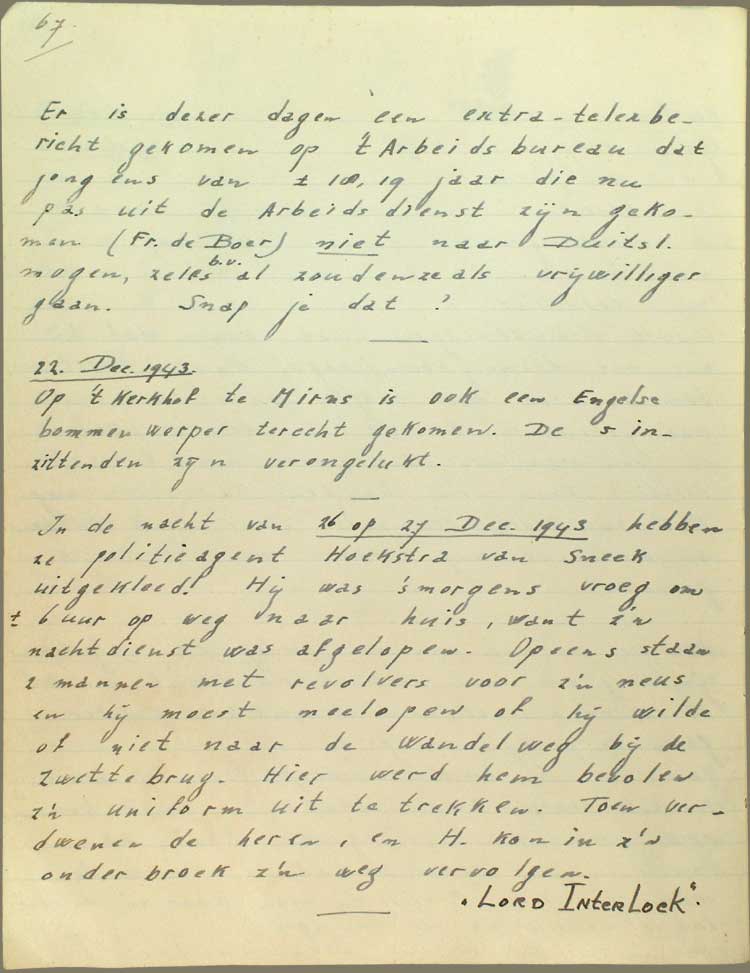 67.
Er is dezer dagen een extra-telexbe-
richt gekomen op 't Arbeidsbureau dat
jongens van ± 18, 19 jaar die nu
pas uit de Arbeidsdienst zijn geko-
men (Fr. de Boer) niet naar Duitsl.
mogen, zelfs b.v. al zouden ze als vrijwilliger
gaan. Snap je dat?
22. Dec. 1943.
Op 't Kerkhof te Mirns is ook een Engelse
bommenwerper terecht gekomen. De 5 in-
zittenden zijn verongelukt.
In de nacht van 26 op 27 Dec. 1943 hebben
ze politieagent Hoekstra van Sneek
uitgekleed! Hij was 's morgens vroeg om
± 6 uur op weg naar huis, want z'n
nachtdienst was afgelopen. Opeens staan
2 mannen met revolvers voor z'n neus
en hij moest meelopen of hij wilde
of niet naar de wandelweg bij de
Zwettebrug. Hier werd hem bevolen
z'n uniform uit te trekken. Toen ver-
dwenen de heren, en H. kon in z'n
onderbroek z'n weg vervolgen.
„Lord Interlock“.